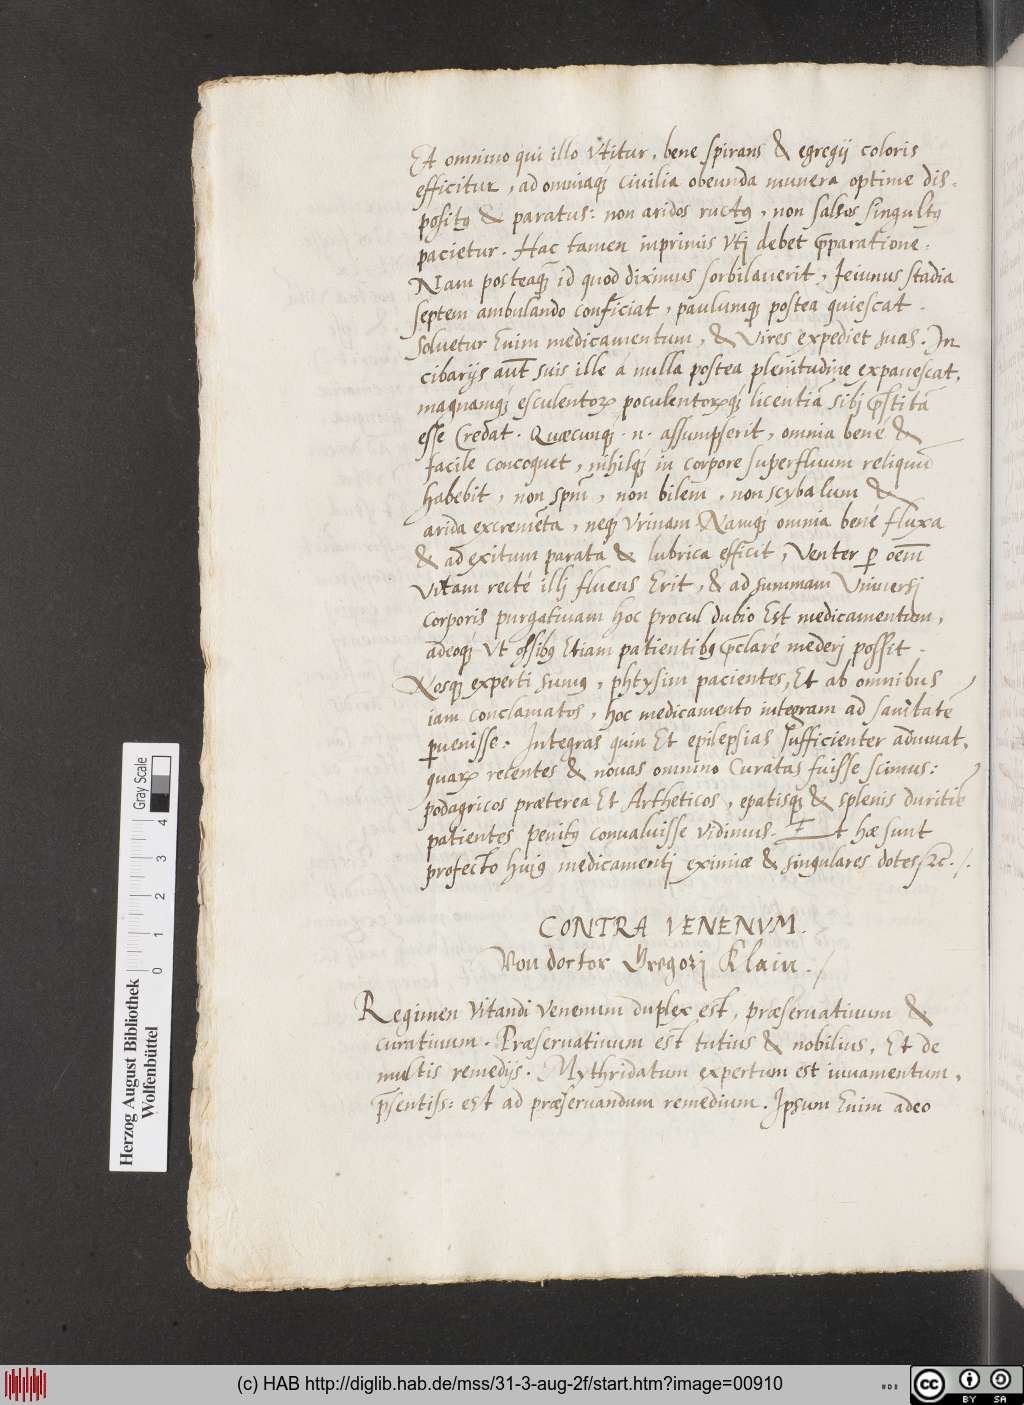 Et omnino qui illo vtitur, bene spirans & egregij coloris
efficitur, ad omniaq́ue civilia obeunda munera optime dis-
positꝰ & paratus: non aridos ructꝰ, non salsos singultꝰ
pacietur. Hac tamen inprimis vtj debet p̄paratione.
Nam posteaq̄ id quod diximus sorbilauerit, Jeiunus stadia
septem ambulando conficiat, paulumq́ postea quiescat.
Soluetur Enim medicamentum, & vires expediet suas. In
cibarijs aūt suis ille á nulla postea plenitudine expauescat,
magnamq́ esculentoꝝ poculentoꝝq́ licentiā sibj p̄stitā
esse Credat. Quæcunq́ .n. assumpserit, omnia bené &
facile concoquet, nihilq́ in corpore superfluum reliquū
habebit, non spm̄, non bilem, non scybalum &
arida excremēta, neq́ vrinam. Namq́ omnia bené fluxa
& ad exitum parata & lubrica efficit, Venter ꝑ oēm
vitam recté illj fluens Erit, & ad summam Vniuersj
corporis purgatiuam hoc procul dubio Est medicamentum,
adeoq́ Vt ossibꝰ Etiam patientibꝰ p̄claré mederj possit.
Nosq́ experti sumꝰ, phtysim pacientes, Et ab omnibus
iam conclamatos, hoc medicamento integram ad sanitatē
ꝑuenisse. Integras quin Et epilepsias sufficienter adiuuat,
quaꝝ recentes & nouas omnino Curatas fuisse scimus:
podagricos præterea Et Artheticos, epatisq́ & splenis duritiē
patientes penitꝰ conualuisse vidimus. Et hæ sunt
profecto huiꝰ medicamentj eximiæ & singulares dotes, ꝛc. /.
CONTRA VENENVM.
Von doctor Gregorj Klain. /
Regimen Vitandi venenum duplex est, præseruatiuum &
curatiuum. Præseruatiuum est tutius & nobilius, Et de
multis remedijs. Mythridatum expertum est iuuamentum,
p̄sentiss: est ad præseruandum remedium. Ipsum Enim adeo
Herzog August Bibliothek
Wolfenbüttel
0 1 2 3 4
Gray Scale
(c) HAB http://diglib.hab.de/mss/31-3-aug-2f/start.htm?image=00910
cc BY SA